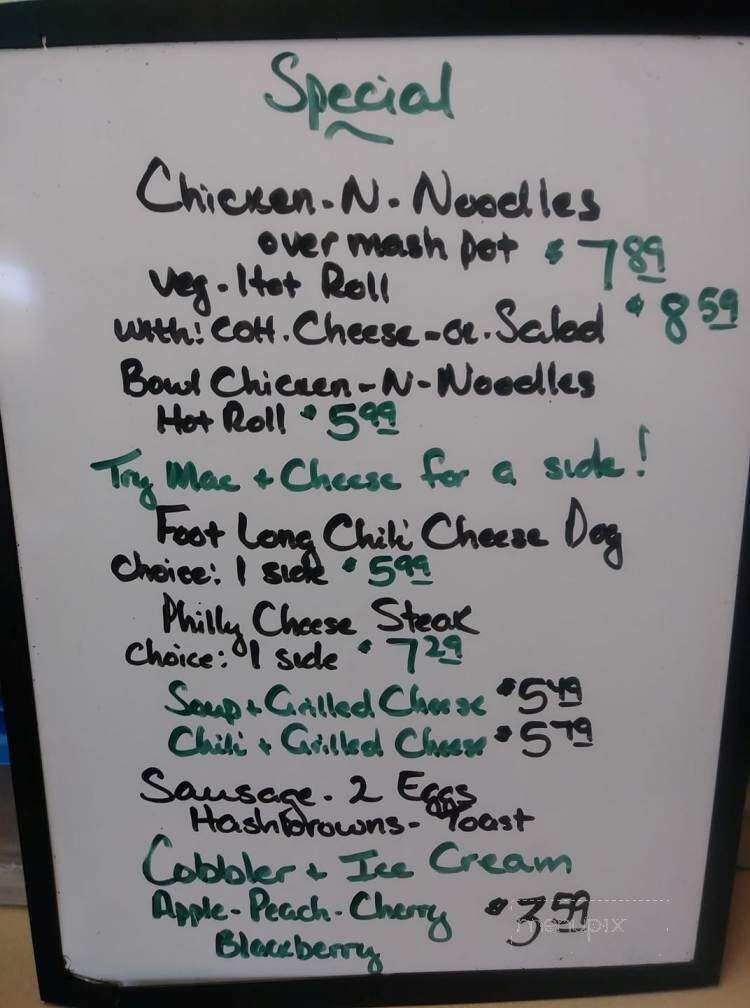 Special
Chicken-N-Noodles
over mash pot $7 89
Veg. Hot Roll
with: Cott. Cheese-or-Salad $8 59
Bowl Chicken-N-Noodles
Hot Roll $5 99
Try Mac + Cheese for a side!
Foot Long Chili Cheese Dog
Choice: 1 side $5 99
Philly Cheese Steak
Choice: 1 side $7 29
Soup + Grilled Cheese $5 49
Chili + Grilled Cheese $5 79
Sausage - 2 Eggs
Hashbrowns - Toast
Cobbler + Ice Cream
Apple-Peach-Cherry $3 59
Blackberry
menupix